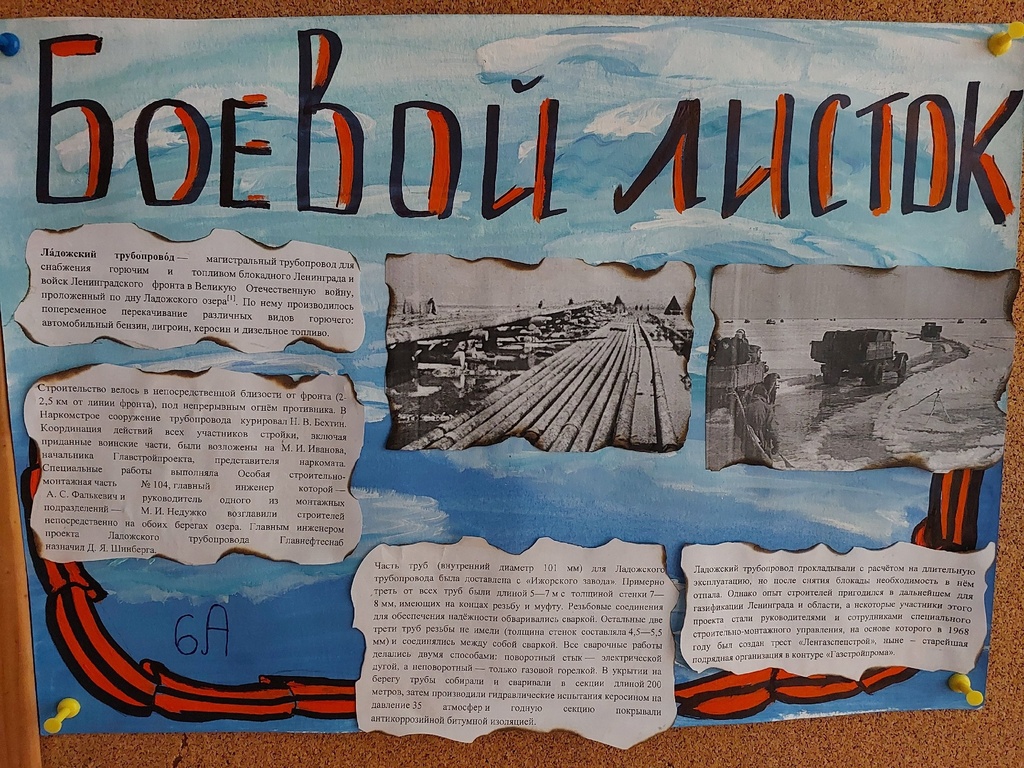 Боевой листок
Ла́дожский трубопрово́д — магистральный трубопровод для
снабжения горючим и топливом блокадного Ленинграда и
войск Ленинградского фронта в Великую Отечественную войну,
проложенный по дну Ладожского озера[1]. По нему производилось
попеременное перекачивание различных видов горючего:
автомобильный бензин, лигроин, керосин и дизельное топливо.
Строительство велось в непосредственной близости от фронта (2-
2,5 км от линии фронта), под непрерывным огнём противника. В
Наркомстрое сооружение трубопровода курировал Н. В. Бехтин.
Координация действий всех участников стройки, включая
приданные воинские части, были возложены на М. И. Иванова,
начальника Главстройпроекта, представителя наркомата.
Специальные работы выполняла Особая строительно-
монтажная часть № 104, главный инженер которой —
А. С. Фалькевич и руководитель одного из монтажных
подразделений — М. И. Недужко возглавили строителей
непосредственно на обоих берегах озера. Главным инженером
проекта Ладожского трубопровода Главнефтеснаб
назначил Д. Я. Шинберга.
6А
Часть труб (внутренний диаметр 101 мм) для Ладожского
трубопровода была доставлена с «Ижорского завода». Примерно
треть от всех труб были длиной 5—7 м с толщиной стенки 7—
8 мм, имеющих на концах резьбу и муфту. Резьбовые соединения
для обеспечения надёжности обваривались сваркой. Остальные две
трети труб резьбы не имели (толщина стенок составляла 4,5—5,5
мм) и соединялись между собой сваркой. Все сварочные работы
делались двумя способами: поворотный стык — электрической
дугой, а неповоротный — только газовой горелкой. В укрытии на
берегу трубы собирали и сваривали в секции длиной 200
метров, затем производили гидравлические испытания керосином на
давление 35 атмосфер и годную секцию покрывали
антикоррозийной битумной изоляцией.
Ладожский трубопровод прокладывали с расчётом на длительную
эксплуатацию, но после снятия блокады необходимость в нём
отпала. Однако опыт строителей пригодился в дальнейшем для
газификации Ленинграда и области, а некоторые участники этого
проекта стали руководителями и сотрудниками специального
строительно-монтажного управления, на основе которого в 1968
году был создан трест «Ленгазспецстрой», ныне – старейшая
подрядная организация в контуре «Газстройпрома».